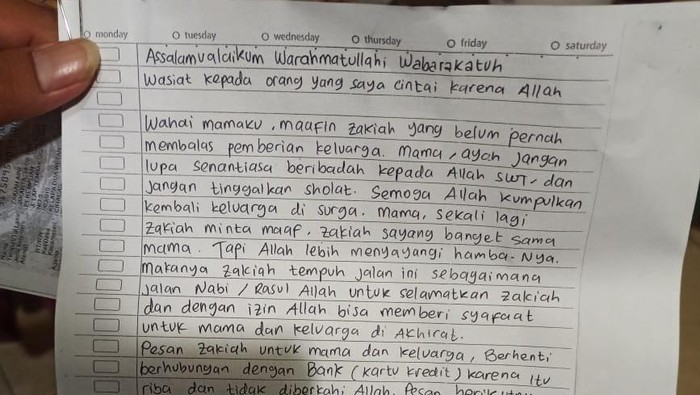 monday tuesday wednesday thursday friday saturday
Assalamualaikum Warahmatullahi Wabarakatuh
Wasiat kepada orang yang saya cintai karena Allah
Wahai mamaku, maafin zakiah yang belum pernah
membalas pemberian keluarga. Mama, ayah jangan
lupa senantiasa beribadah kepada Allah SWT, dan
jangan tinggalkan sholat. Semoga Allah kumpulkan
kembali keluarga di surga. Mama, sekali lagi
zakiah minta maaf, zakiah sayang banget sama
mama. Tapi Allah lebih menyayangi hamba-Nya.
makanya zakiah tempuh jalan ini sebagaimana
jalan Nabi / Rasul Allah untuk selamatkan zakiah
dan dengan izin Allah bisa memberi syafaat
untuk mama dan keluarga di Akhirat.
Pesan zakiah untuk mama dan keluarga, Berhenti
berhubungan dengan Bank (kartu kredit) karena itu
riba dan tidak diberkahi Allah. Pesan